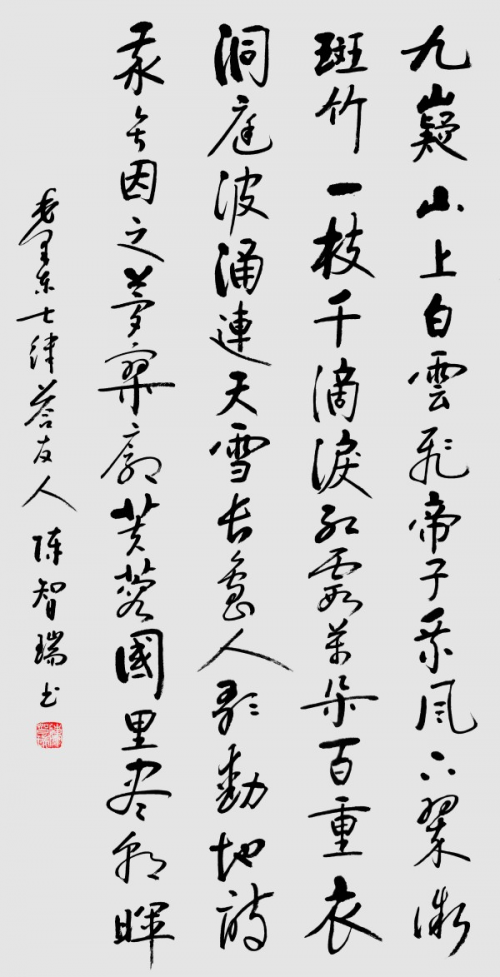 九嶷山上白雲飛帝子乘風下翠微
斑竹一枝千滴淚紅霞萬朵百重衣
洞庭波涌連天雪长島人歌動地詩
我欲因之夢寥廓芙蓉國里尽朝暉
毛澤东七律答友人 陈智瑞书